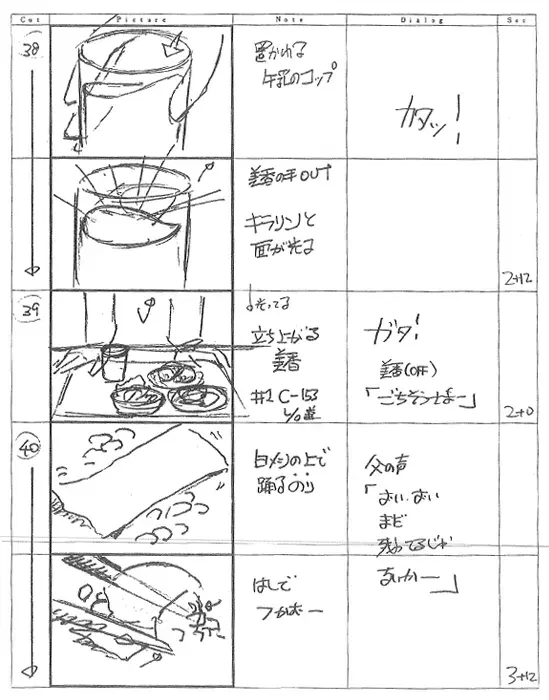 Cut Picture Note Dialog Sec
38
置かれる
牛乳のコップ
カタッ!
美香の手OUT
キラリンと
面が光る
2+12
39
光ってる
立ち上がる
美香
#1 C-153
ガタ!
美香(OFF)
「ごちそうさまー」
2+0
40
白メシの上で
踊るのり
父の声
「おい、おい
まだ
残ってるじゃ
ないかー」
はしで
つかむー
3+12